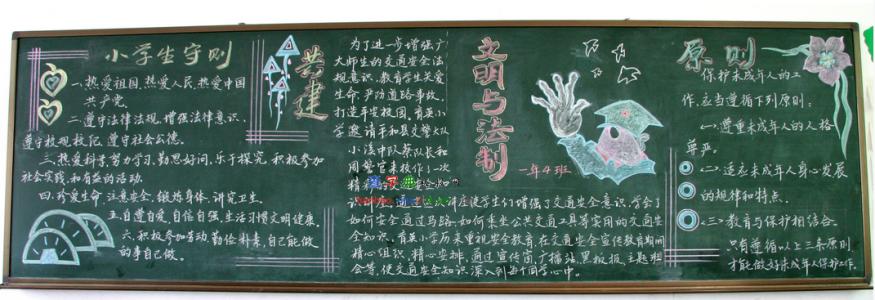 小学生守则
一、热爱祖国,热爱人民,热爱中国
共产党。
二、遵守法律法规,增强法律意识,
遵守校规校纪,遵守社会公德。
三、热爱科学,努力学习,勤思好问,乐于探究,积极参加
社会实践和有益的活动.
四、珍爱生命,注意安全,锻炼身体,讲究卫生.
五、自尊自爱,自信自强,生活习惯文明健康.
六、积极参加劳动,勤俭朴素,自己能做
的事自己做。
共建
为了进一步增强广
大师生的交通安全法
规意识,教育学生关爱
生命,严防道路事故,
打造平安校园,育英小
学邀请平和县交警大队
小溪中队蔡队长和
周警官来校作了一次
精彩的交通安全知
识讲座,通过这次讲座使学生们增强了交通安全意识,学会了
如何安全通过马路、如何乘坐公共交通工具等实用的交通安
全知识。育英小学历来重视安全教育,在交通安全宣传教育期间
精心组织,精心安排,通过宣传窗,广播站,黑板报,主题班
会等,使交通安全知识深入到每个同学心中。
文明与法制
一年4班
原则
保护未成年人的工
作,应当遵循下列原则:
<一>尊重未成年人的人格
尊严。
<二>适应未成年人身心发展
的规律和特点.
<三>教育与保护相结合。
只有遵循以上三条原则
才能做好未成年人保护工作。